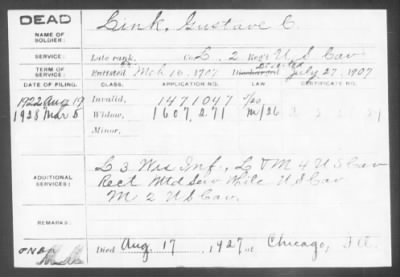 DEAD
NAME OF SOLDIER: Link, Gustave C.
SERVICE: Late rank, Co. L, 2 Reg't U S Cav
TERM OF SERVICE: Enlisted Mch 16, 1907 Discharged Deserted July 27, 1907
DATE OF FILING. CLASS. APPLICATION NO. LAW CERTIFICATE NO.
1922 Aug 19 Invalid, 1471047
1928 Mar 5 Widow, 1607,271 m/26
Minor,
L 3 Wis Inf., L & M 4 U S Cav
ADDITIONAL SERVICES: Rect Mtd Serv White U S Cav
M 2 U S Cav.
REMARKS:
Died Aug 17, 1927 at Chicago, Ill.